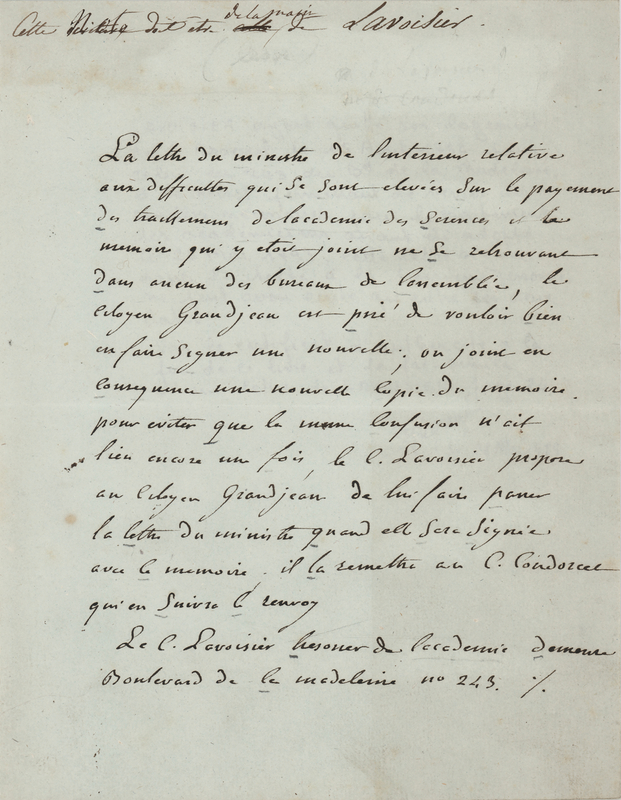 Cette Note doit etre de la main de Lavoisier.
La lettre du ministre de l'interieur relative
aux difficultés qui se sont elevées sur le payement
des traittemens de lacademie des Sciences et le
memoire qui y etoit joint ne se retrouvant
dans aucun des bureaux de l'assemblée, le
Citoyen Grandjean est prié de vouloir bien
en faire signer une nouvelle; on joint en
consequence une nouvelle Copie du memoire.
pour eviter que la meme Confusion n'ait
lieu encore une fois, le C. Lavoisier propose
au Citoyen Grandjean de lui faire passer
la lettre du ministre quand elle sera signée
avec le memoire. il la remettra au C. Condorcet
qui en suivra le renvoy
Le C. Lavoisier tresorier de lacademie demeure
Boulevard de la madeleine no 243. ./.